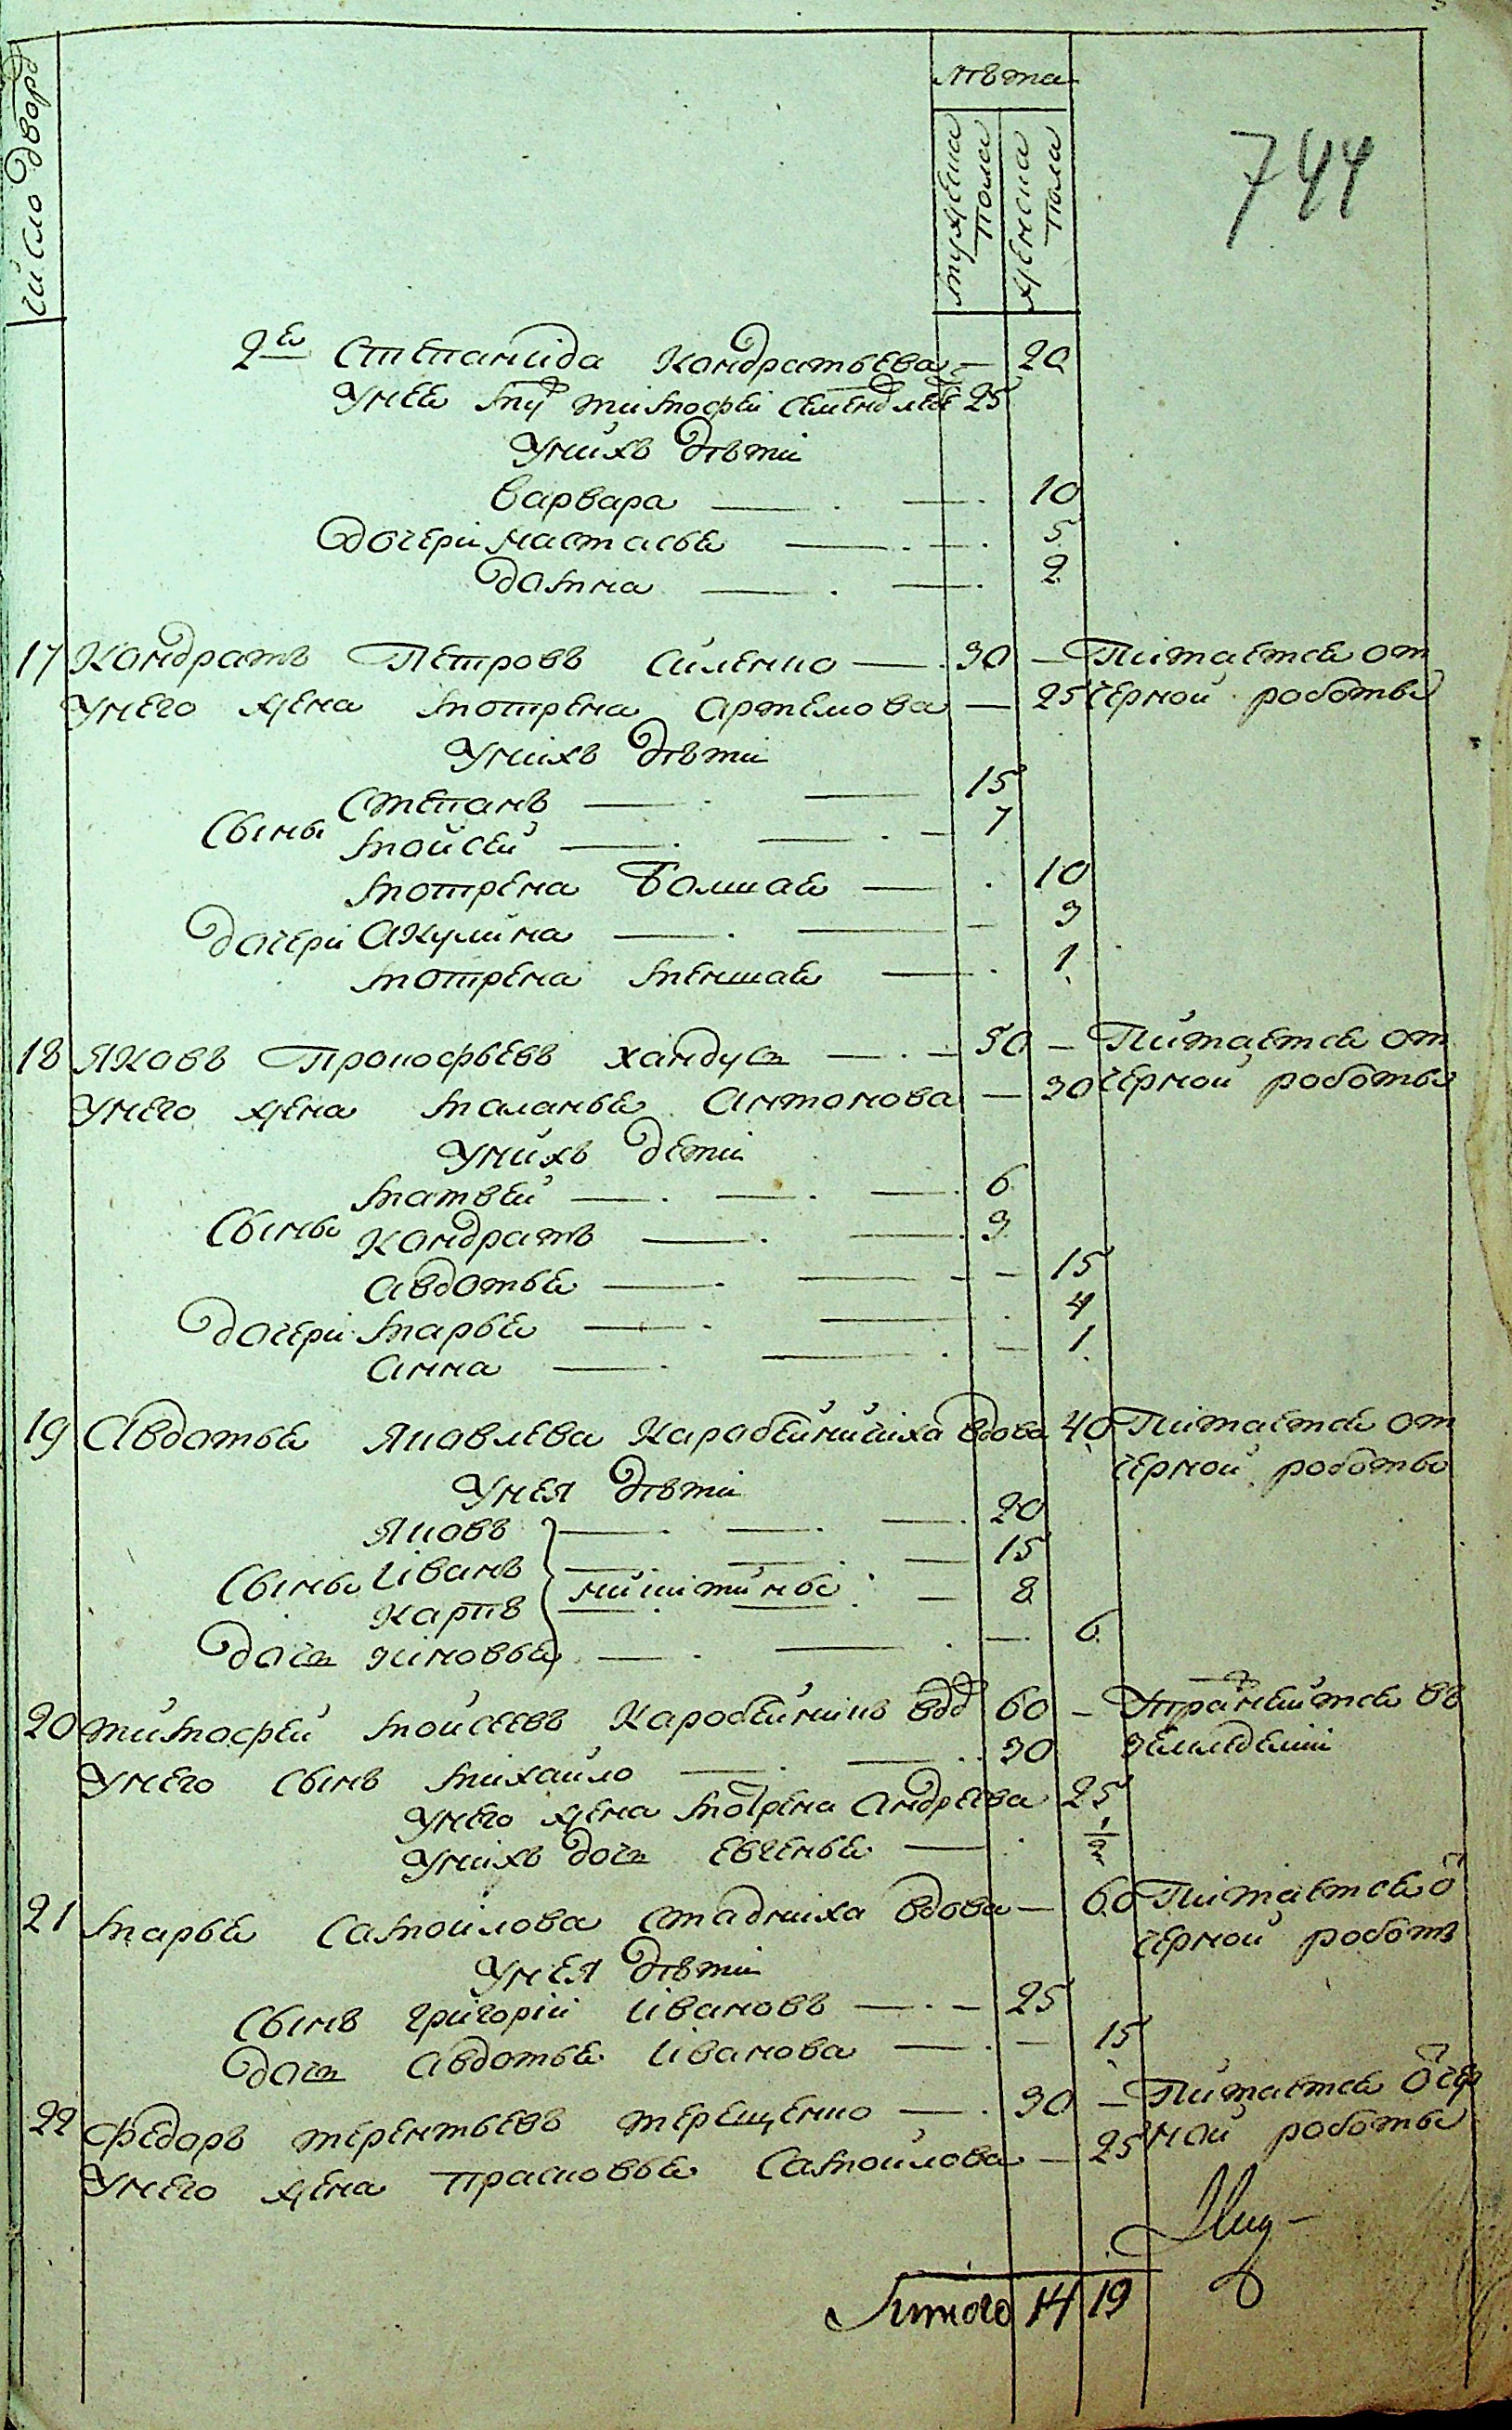 число дворѣ
лѣта
мужеска пола
женска пола
744
2я Степанида Кондратьева — 20
Унее муж тимофей Семенд 25
Унихъ дѣти
Варвара — 10
дочери настасья — 5
домна — 2
17 Кондратъ Петровъ Силенко — 30 — Питается от
Унего жена мотрена Артемова — 25 черной роботы
Унихъ дѣти
Степанъ — 15
Сыны
мойсей — 7
мотрена Болшая — 10
дочери Акулина — 3
мотрена меншая — 1
18 Яковъ Прокофьевъ хандусь — 50 — Питается от
Унего жена маланья Антонова — 30 черной роботы
Унихъ дети
матвей — 6
Сыны
Кондратъ — 3
авдотья — 15
дочери марья — 4
анна — 1
19 Авдотья Яковлева Карабейничиха вдова 40 Питается от
черной роботы
Унея дѣти
Яковъ — 20
Сыны Иванъ — 15
никитины
Карпъ — 8
дочь зиновья — 6
20 тимофей мойсеевъ Каробейникъ вдв 60 — Упражнеится въ
Унего сынъ михайло — 30 земледелии
Унего жена мотрена Андреева 25
Унихъ дочь Евгенья — 1/2
21 марья Самойлова стадниха вдова — 60 Питается от
черной роботъ
Унея дѣти
Сынъ григорій Ивановъ — 25
дочь авдотья Иванова — 15
22 Федоръ терентьевъ терещенко — 30 — Питается от чер
Унего жена прасковья Самойлова — 25 ной роботы
Итого 14 19